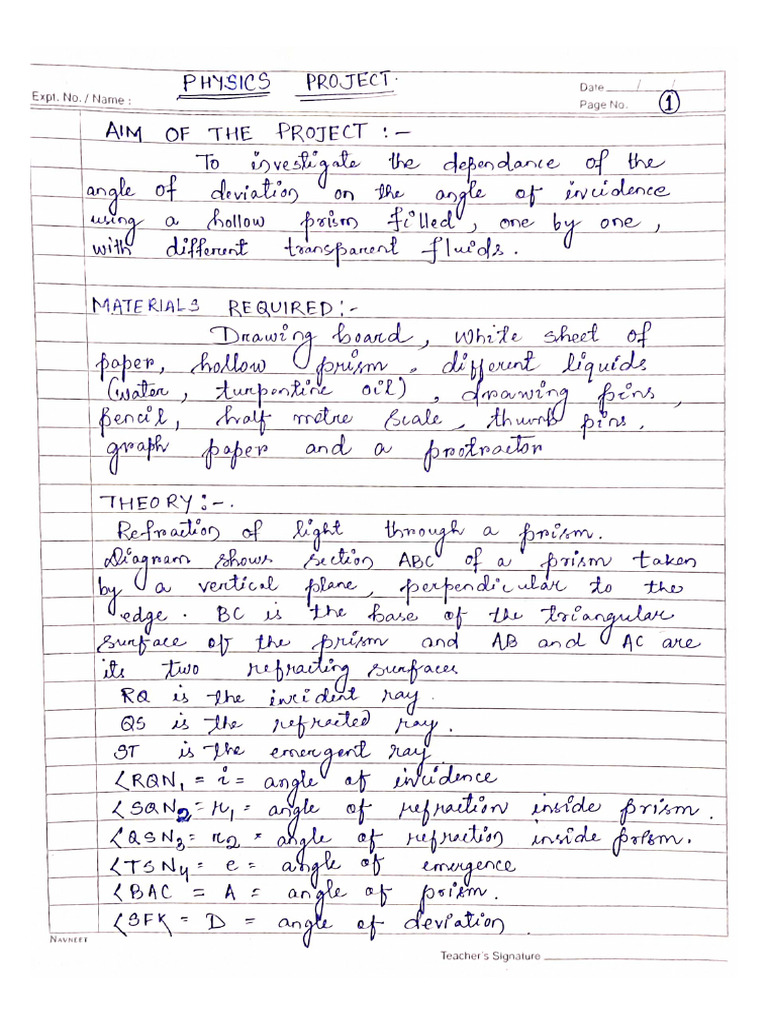 PHYSICS PROJECT.
Expt. No. / Name :
Date ___/___/___
Page No. 1
AIM OF THE PROJECT :-
To investigate the dependance of the
angle of deviation on the angle of incidence
using a hollow prism filled, one by one,
with different transparent fluids.
MATERIALS REQUIRED:-
Drawing board, White sheet of
paper, hollow prism, different liquids
(water, turpentine oil), drawing pins,
pencil, half metre scale, thumb pins,
graph paper and a protractor
THEORY:-.
Refraction of light through a prism.
Diagram shows section ABC of a prism taken
by a vertical plane, perpendicular to the
edge. BC is the base of the triangular
surface of the prism and AB and AC are
its two refracting surfaces
RQ is the incident ray.
QS is the refracted ray.
ST is the emergent ray
∠RQN₁ = i = angle of incidence
∠SQN₂ = r₁ = angle of refraction inside prism.
∠QSN₃ = r₂ = angle of refraction inside prism.
∠TSN₄ = e = angle of emergence
∠BAC = A = angle of prism.
∠SFK = D = angle of deviation.
NAVNEET
Teacher's Signature